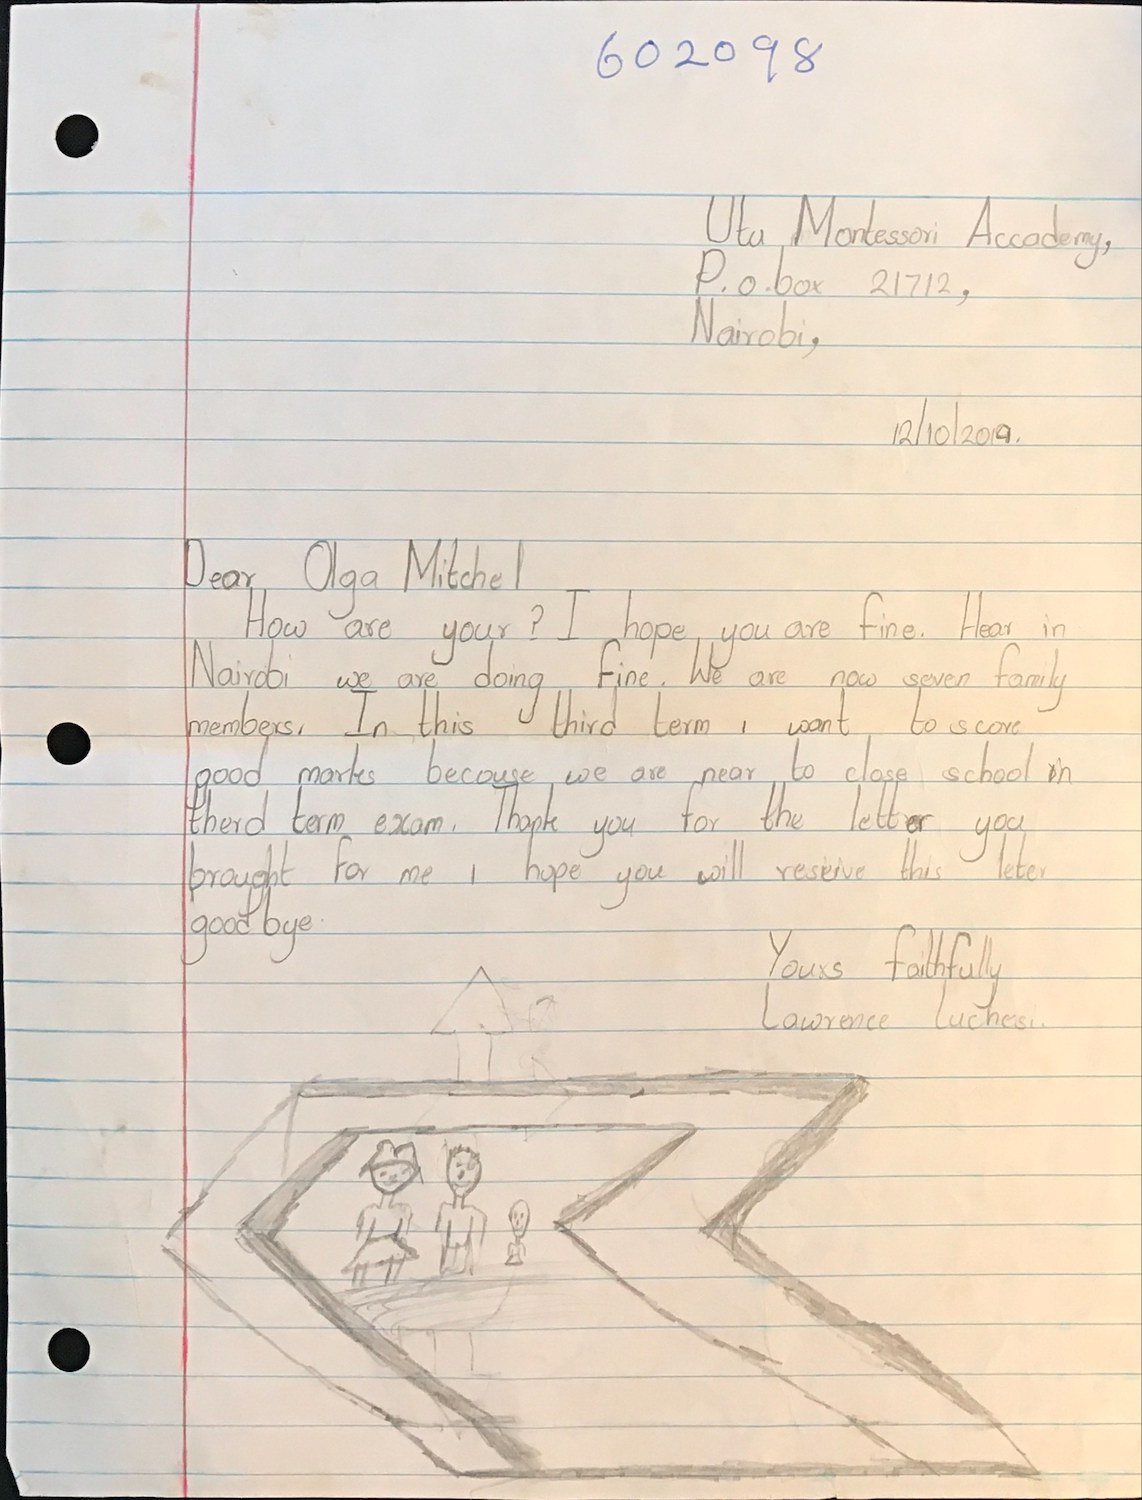 602098
Utu Montessori Accademy,
P.o.box 21712,
Nairobi,
12/10/2019.
Dear Olga Mitchel
How are your? I hope you are fine. Hear in
Nairobi we are doing fine. We are now seven family
members. In this third term i want to score
good marks becouse we are near to close school in
therd term exam. Thank you for the letter you
brought for me i hope you will reseive this leter
good bye.
Yours faithfully
Lawrence Luchesi.